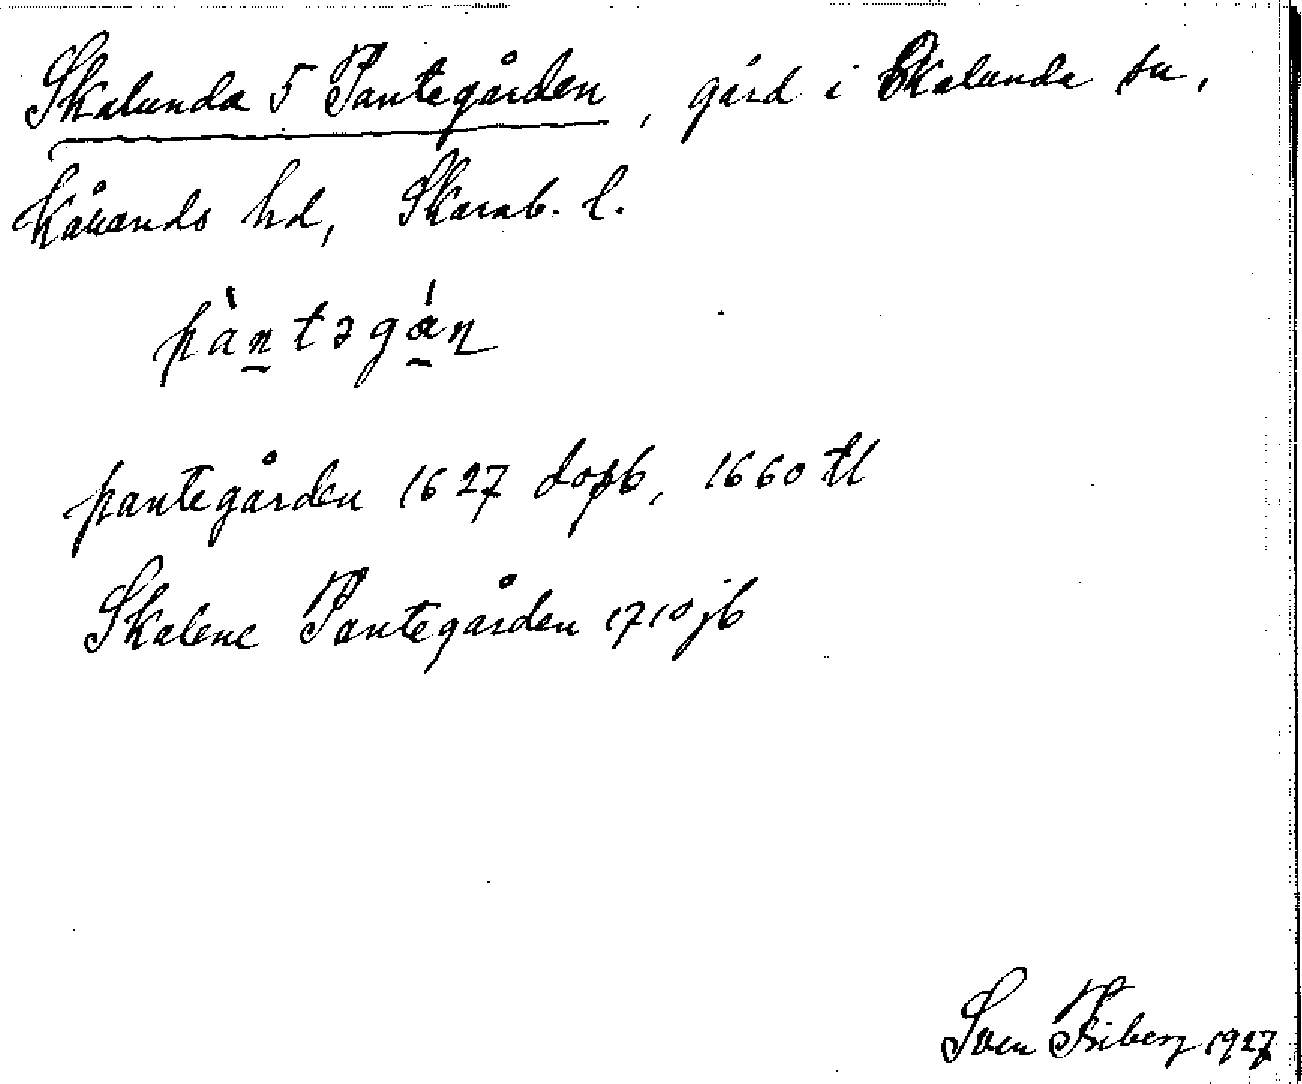 Skalunda 5 Pantegården, gård i Skalunda sn,
Kållands hd, Skarab. l.
pàntəgán
pantegården 1627 dopb, 1660 tl
Skalene Pantegården 1710 jb
Sven Friberg 1927